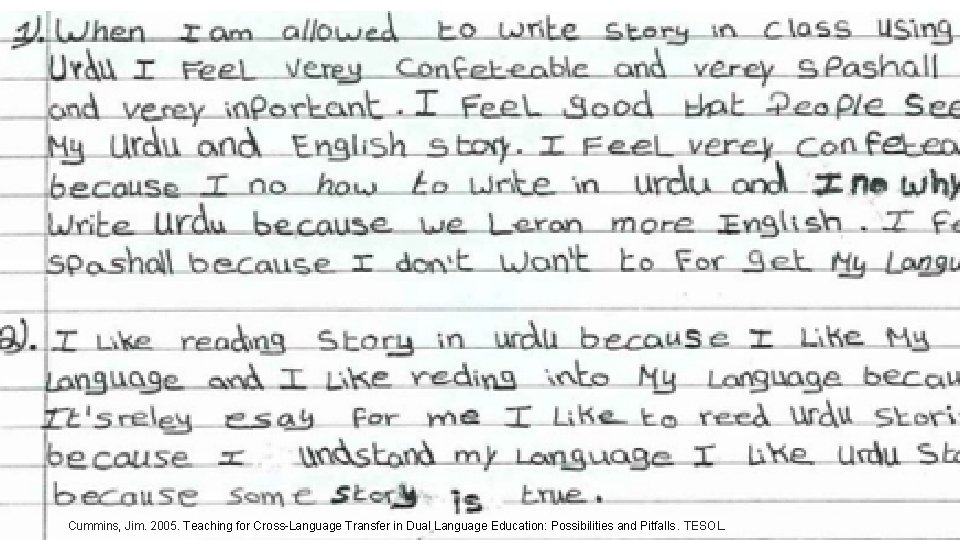 1). When I am allowed to write story in class using
Urdu I Feel verey confeteable and verey spashall
and verey inportant. I Feel good that People See
My Urdu and English story. I Feel verey confetea
because I no how to write in urdu and I no why
Write Urdu because we Leran more English. I Fe
spashall because I don't wan't to For get My Langu
2). I Like reading Story in urdu because I Like My
Language and I Like reding into My Language becau
It's reley esay For me I Like to reed urdu stori
because I undstand my Language I Like Urdu Sto
because some story is true.
Cummins, Jim. 2005. Teaching for Cross-Language Transfer in Dual Language Education: Possibilities and Pitfalls. TESOL.